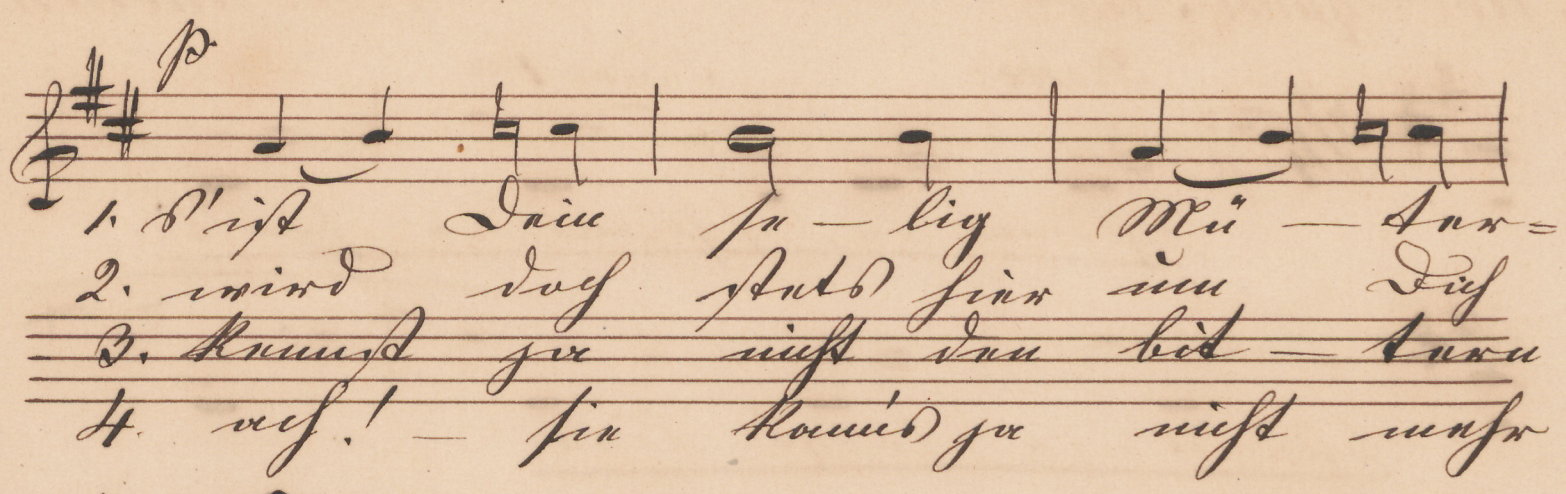 p.
1. S'ist Dein se – lig Mü – ter=
2. wird doch stets hier um Dich
3. kennst ja nicht den bit – tern
4. ach! – sie kann's ja nicht mehr